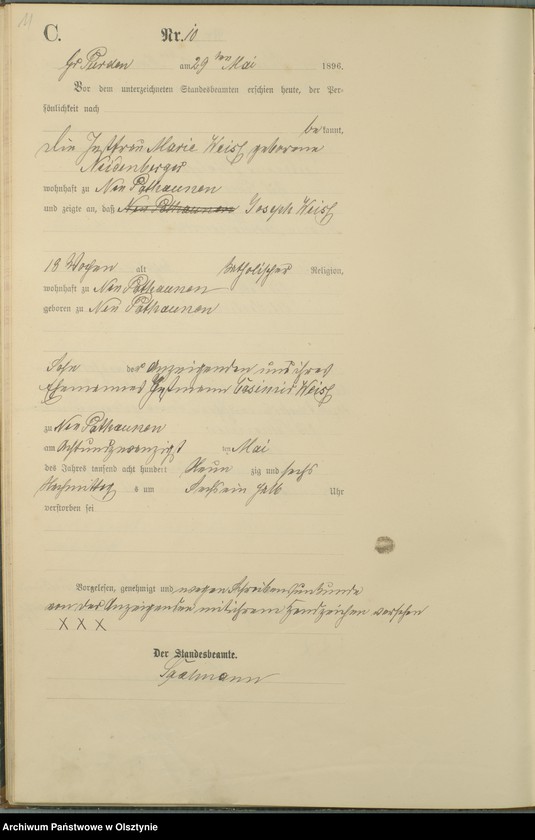 11
C. Nr. 10
Gr Purden am 29 ten Mai 1896.
Vor dem unterzeichneten Standesbeamten erschien heute, der Per-
sönlichkeit nach
bekannt,
Die Instfrau Marie Weiß geborene
Neidenberger
wohnhaft zu Neu Pathaunen
und zeigte an, daß Neu Pathaunen Joseph Weiß
18 Wochen alt katholischer Religion,
wohnhaft zu Neu Pathaunen
geboren zu Neu Pathaunen
Sohn der Anzeigenden und ihres
Ehemannes Instmann Casimir Weiß
zu Neu Pathaunen
am Achtundzwanzigst ten Mai
des Jahres tausend acht hundert Neun zig und sechs
Nachmittag s um Sechs ein halb Uhr
verstorben sei
Vorgelesen, genehmigt und wegen Schreibensunkunde
von der Anzeigenden mit ihrem Handzeichen versehen
X X X
Der Standesbeamte.
Archiwum Państwowe w Olsztynie